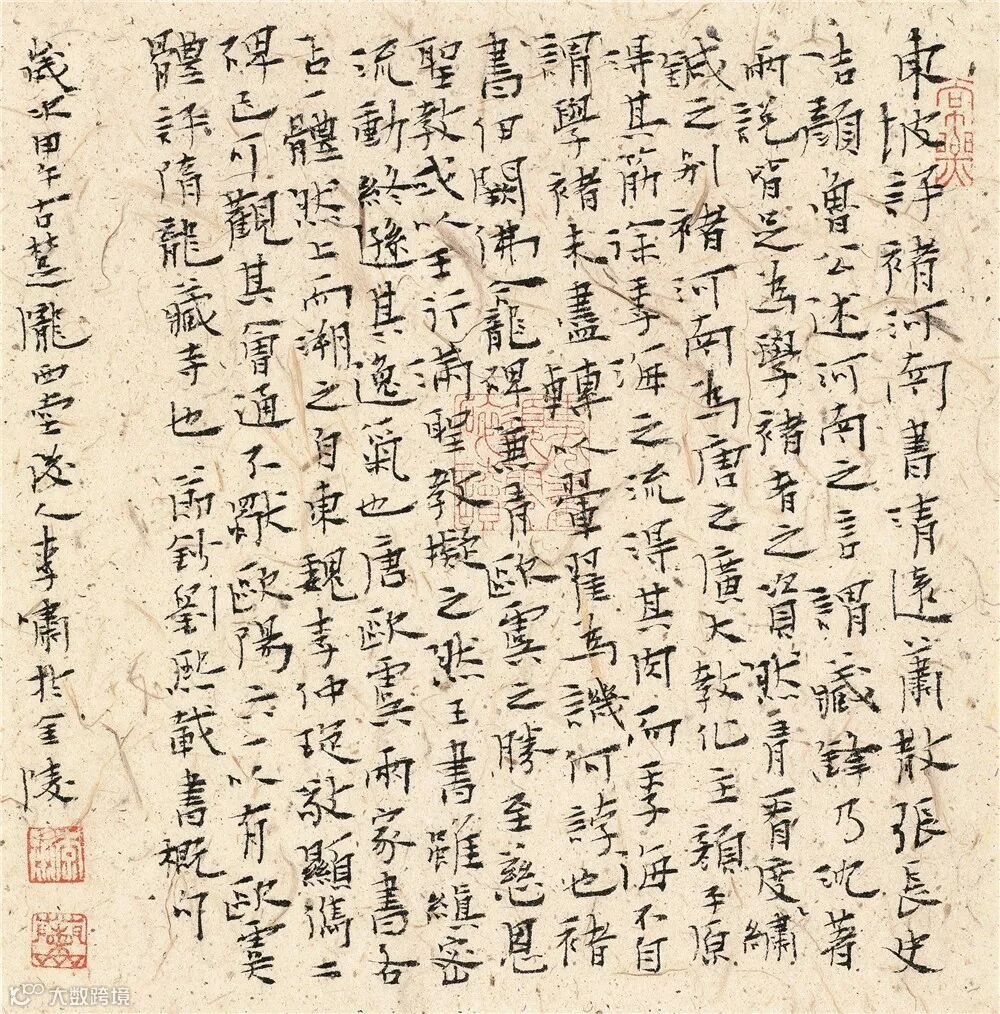 東坡評褚河南書清遠蕭散張長史
告顏魯公述河南之言謂藏鋒乃沈著
兩說皆足為學褚者之資然有看度繡
鍼之別褚河南為唐之廣大教化主顏平原
得其筋徐季海之流得其肉而季海不自
謂學褚未盡轉以翬翟為譏何誖也褚
書伊闕佛龕碑兼有歐虞之勝至慈恩
聖教或以王行滿聖教擬之然王書雖縝密
流動終遜其逸氣也唐歐虞兩家書各
占一體然上而溯之自東魏李仲琁敬顯儁二
碑已可觀其會通不獨歐陽六一以有歐虞
體評隋龍藏寺也 節鈔劉熙載書概句
歲次甲午古楚隴西堂後人李嘯於金陵
大数跨境